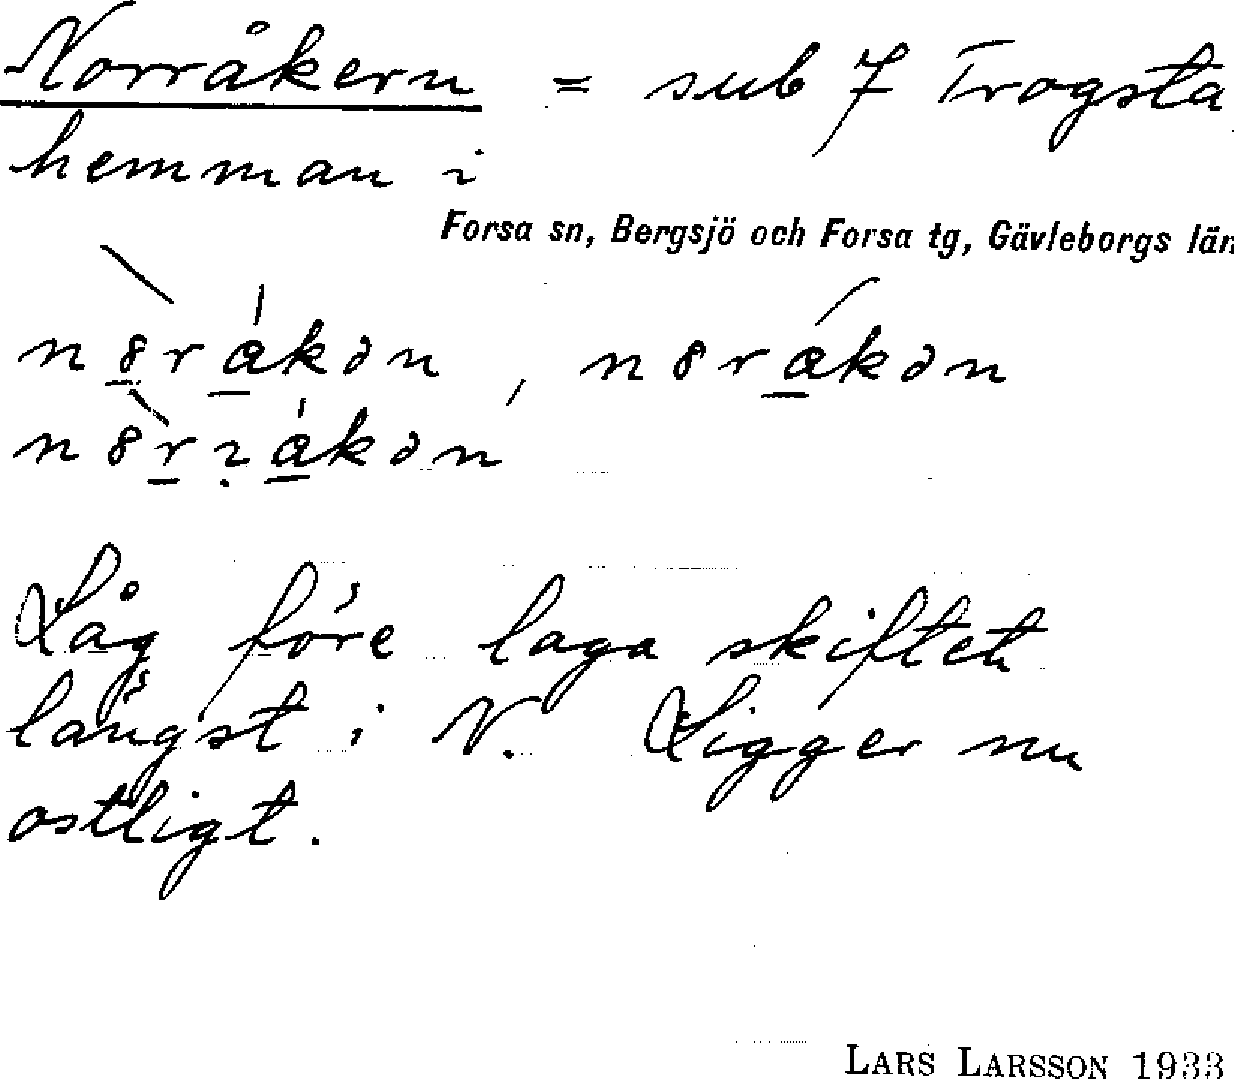 Norråkern = sub 7 Trogsta
hemman i
Forsa sn, Bergsjö och Forsa tg, Gävleborgs län
Låg före laga skiftet
längst i N. Ligger nu
ostligt.
LARS LARSSON 1933